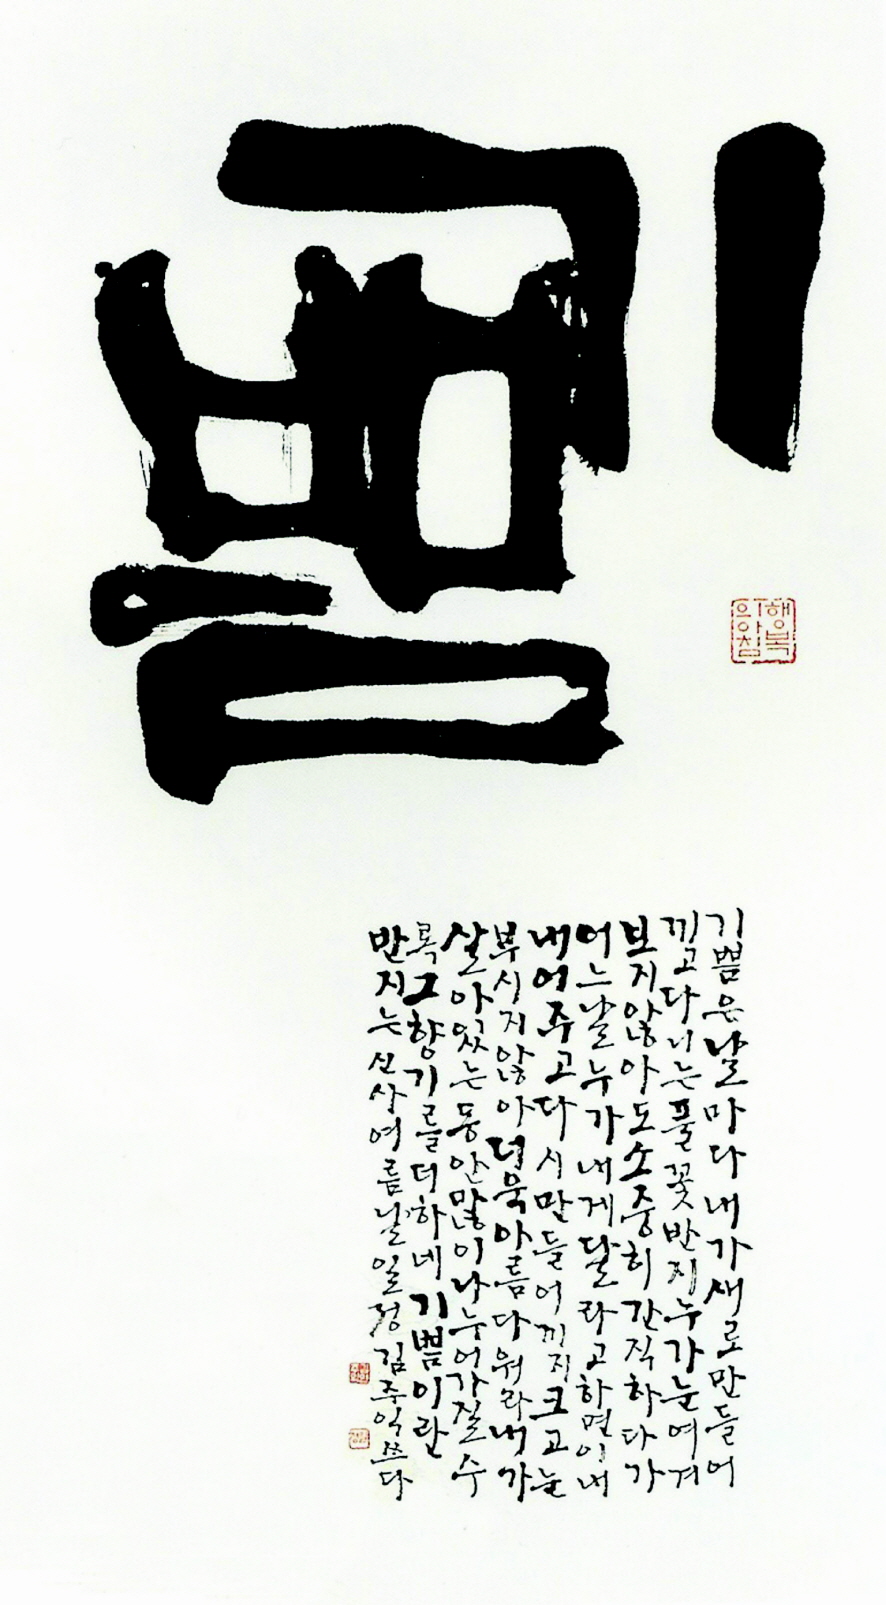 기쁨
행복
의아침
기쁨은날마다내가새로만들어
끼고다니는풀꽃반지누가눈여겨
보지않아도소중히간직하다가
어느날누가내게달라고하면이내
내어주고다시만들어끼지크고눈
부시지않아더욱아름다워라내가
살아있는동안많이나누어가질수
록그향기를더하네기쁨이란
반지는신사여름날일정김주익쓰다